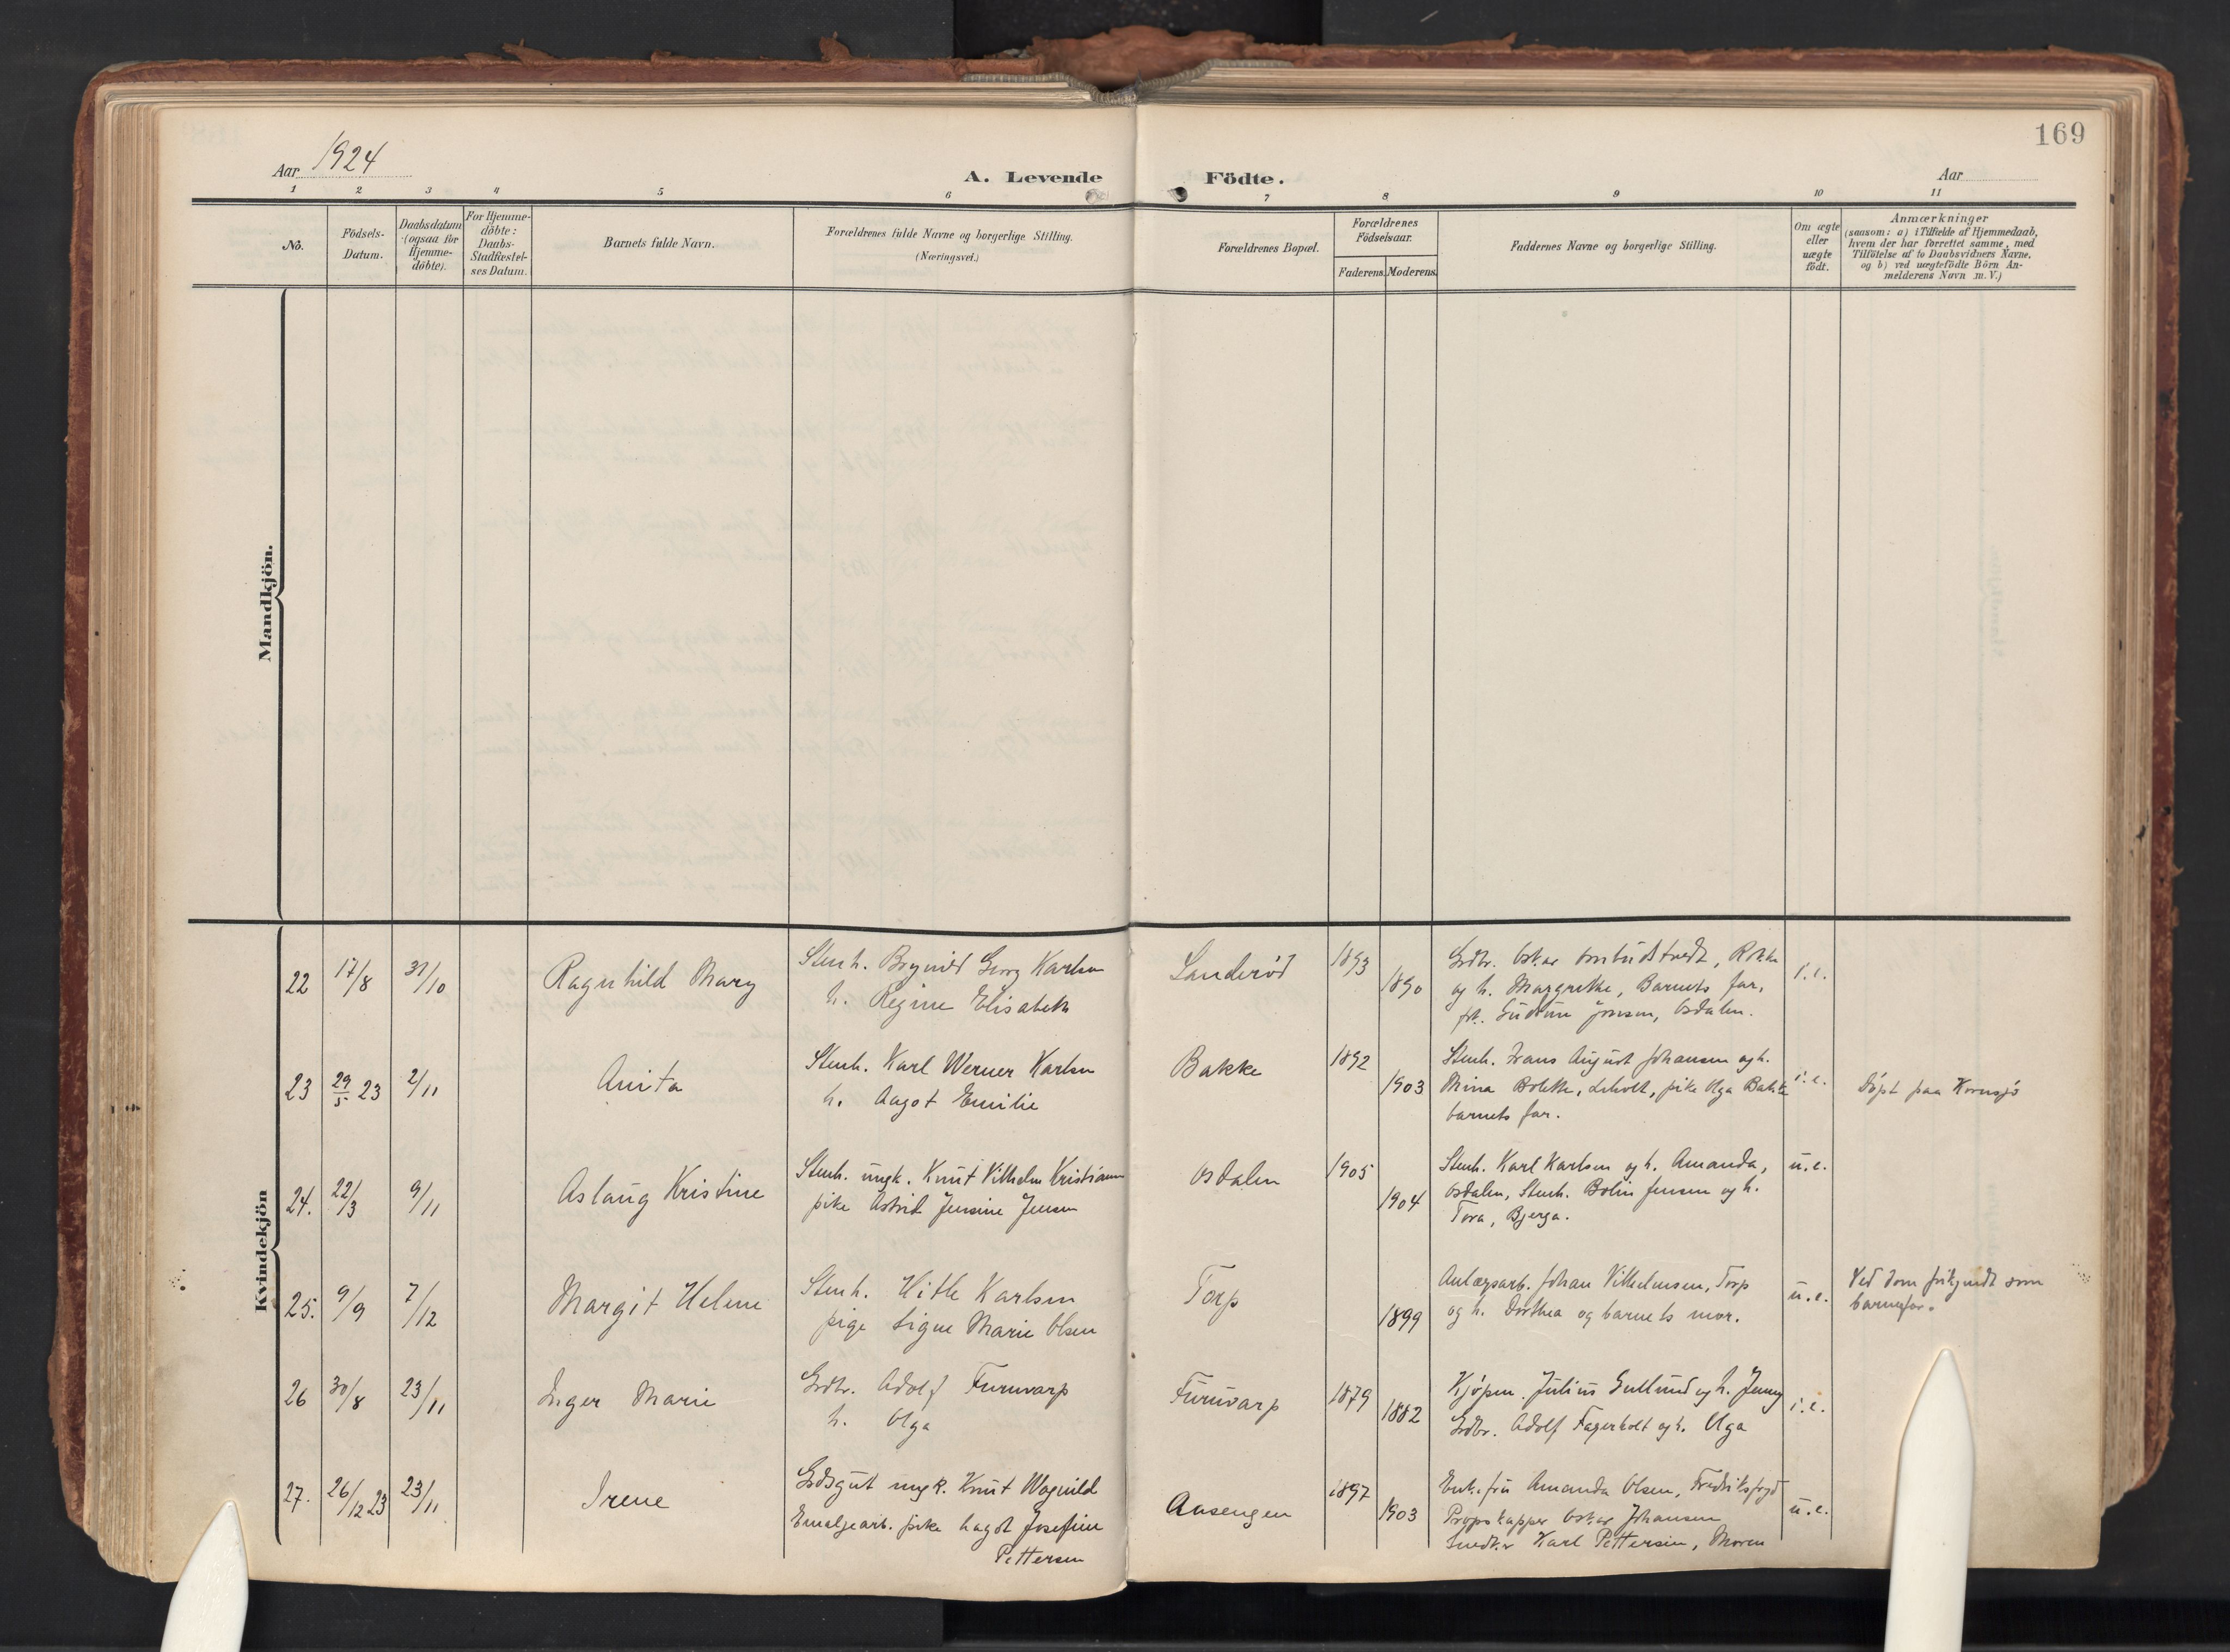 169
Aar 1924
A. Levende Födte.
Aar
1 2 3 4 5 6 7 8 9 10 11
No.
Födsels-Datum.
Daabsdatum (ogsaa for Hjemme-döbte).
For Hjemme-döbte: Daabs-Stadfestel-ses Datum.
Barnets fulde Navn.
Forældrenes fulde Navne og borgerlige Stilling. (Næringsvei.)
Forældrenes Bopæl.
Forældrenes Födselsaar.
Faderens. Moderens.
Faddernes Navne og borgerlige Stilling.
Om ægte eller uægte födt.
Anmærkninger
(saasom: a) i Tilfælde af Hjemmedaab,
hvem der har forrettet samme, med
Tilföielse af to Daabsvidners Navne,
og b) ved uægtefödte Börn An-
melderens Navn m. V.)
Mandkjön.
Kvindekjön
22 17/8 31/10 Ragnhild Mary
Stenh. Brynild Georg Karlsen
h. Regine Elisabeth
Landerød 1893 1890
Grdbr. Oskar , Rokke
og h. Margrethe, Barnets far,
frk. Gudrun Jensen, Osdalen.
i.e.
23 29/5 23 2/11 Anita
Stenh. Karl Werner Karlsen
h. Aagot Emilie
Bakke 1892 1903
Stenh. Frans August Johansen og h.
Mina Bolette, Liholt, pike Olga Bakke
barnets far.
i.e.
Döpt paa Kornsjö
24. 22/3 9/11 Aslaug Kristine
Stenh. ungk. Knut Vilhelm Kristiansen
pike Astrid Jensine Jensen
Osdalen 1905 1904
Stenh. Karl Karlsen og h. Amanda,
Osdalen, Stenh. Bolin Jensen og h.
Tora, Bjerga.
u.e.
25. 9/9 7/12 Margit Helene
Stenh. Karlsen
pige Signe Marie Olsen
Torp 1899
Anlægsarb. Johan Vilhelmsen, Torp
og h. Dorthea og barnets mor.
u.e.
Ved dom frikjendt som
barnefar.
26 30/8 23/11 Inger Marie
Grdbr. Adolf Furuvarp
h. Olga
Furuvarp 1879 1882
Kjöpm. Julius Gullund og h. Jenny
Grdbr. Adolf Fagerholt og h. Olga
i.e.
27. 26/12 23 23/11 Irene
Grdsgut ungk. Knut Wagnild
Emaljearb. pike Josefine
Pettersen
Aasengen 1897 1903
Enkefru Amanda Olsen, Fredrikshald
Propskapper Oskar Johansen
Snedker Karl Pettersen, Moren
u.e.